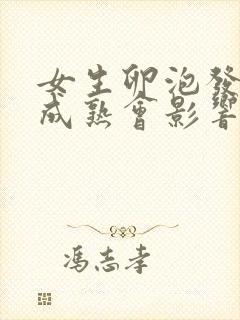 女生卵泡發
成熟會影響
馮志孝